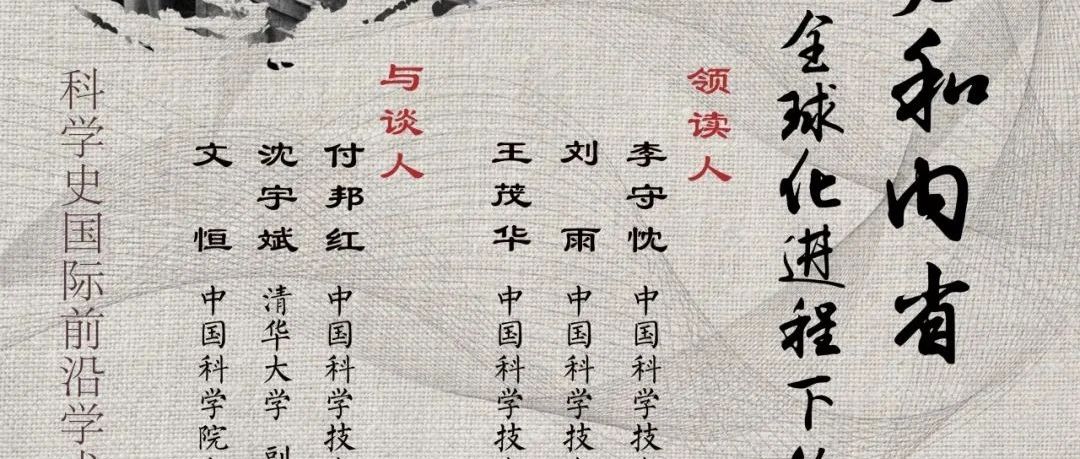 和内省
全球化进程下
领读人
李守忱 中国科学技
刘雨 中国科学技
王茂华 中国科学技
与谈人
付邦红 中国科学技
沈宇斌 清华大学 副
文恒 中国科学院
科学史国际前沿学